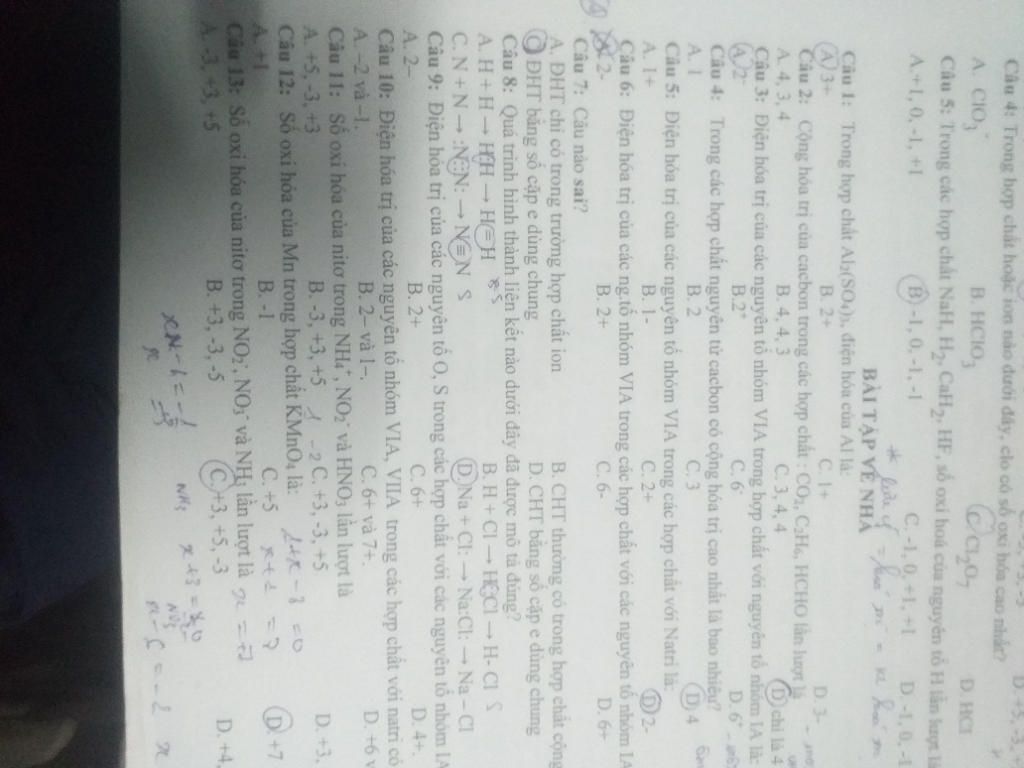 Câu 4: Trong hợp chất hoặc ion nào dưới đây, clo có số oxi hóa cao nhất?
A. ClO3- B. HClO3 C. Cl2O7 D. HCl
Câu 5: Trong các hợp chất NaH, H2, CaH2, HF, số oxi hoá của nguyên tố H lần lượt là
A.+1, 0, -1, +1 B. -1, 0, -1, -1 C. -1, 0, +1, +1 D. -1, 0, -1
BÀI TẬP VỀ NHÀ
Câu 1: Trong hợp chất Al2(SO4)3, điện hóa của Al là:
A. 3+ B. 2+ C. 1+ D. 3-
Câu 2: Cộng hóa trị của cacbon trong các hợp chất : CO2, C2H6, HCHO lần lượt là
A. 4, 3, 4 B. 4, 4, 3 C. 3, 4, 4 D. chỉ là 4
Câu 3: Điện hóa trị của các nguyên tố nhóm VIA trong hợp chất với nguyên tố nhóm IA là:
A. 2- B.2+ C. 6- D. 6+
Câu 4: Trong các hợp chất nguyên tử cacbon có cộng hóa trị cao nhất là bao nhiêu?
A. 1 B. 2 C. 3 D. 4
Câu 5: Điện hóa trị của các nguyên tố nhóm VIA trong các hợp chất với Natri là:
A. 1+ B. 1- C. 2+ D. 2-
Câu 6: Điện hóa trị của các ng.tố nhóm VIA trong các hợp chất với các nguyên tố nhóm IA
A. 2- B. 2+ C. 6- D. 6+
Câu 7: Câu nào sai?
A. ĐHT chỉ có trong trường hợp chất ion B. CHT thường có trong hợp chất cộng
C. ĐHT bằng số cặp e dùng chung D. CHT bằng số cặp e dùng chung
Câu 8: Quá trình hình thành liên kết nào dưới đây đã được mô tả đúng?
A. H + H → H:H → H = H B. H + Cl → H:Cl → H- Cl
C. N + N → :N::N: → N ≡ N D. Na + Cl: → NaCl: → Na – Cl
Câu 9: Điện hóa trị của các nguyên tố O, S trong các hợp chất với các nguyên tố nhóm IA
A. 2– B. 2+ C. 6+ D. 4+.
Câu 10: Điện hóa trị của các nguyên tố nhóm VIA, VIIA trong các hợp chất với natri có
A. –2 và –1. B. 2– và 1–. C. 6+ và 7+. D. +6 v
Câu 11: Số oxi hóa của nitơ trong NH4+, NO2- và HNO3 lần lượt là
A. +5, -3, +3 B. -3, +3, +5 C. +3, -3, +5 D. +3,
Câu 12: Số oxi hóa của Mn trong hợp chất KMnO4 là:
A. +1 B. -1 C. +5 D. +7
Câu 13: Số oxi hóa của nitơ trong NO2-, NO3- và NH3 lần lượt là
A. -3, +3, +5 B. +3, -3, -5 C. +3, +5, -3 D. +4,